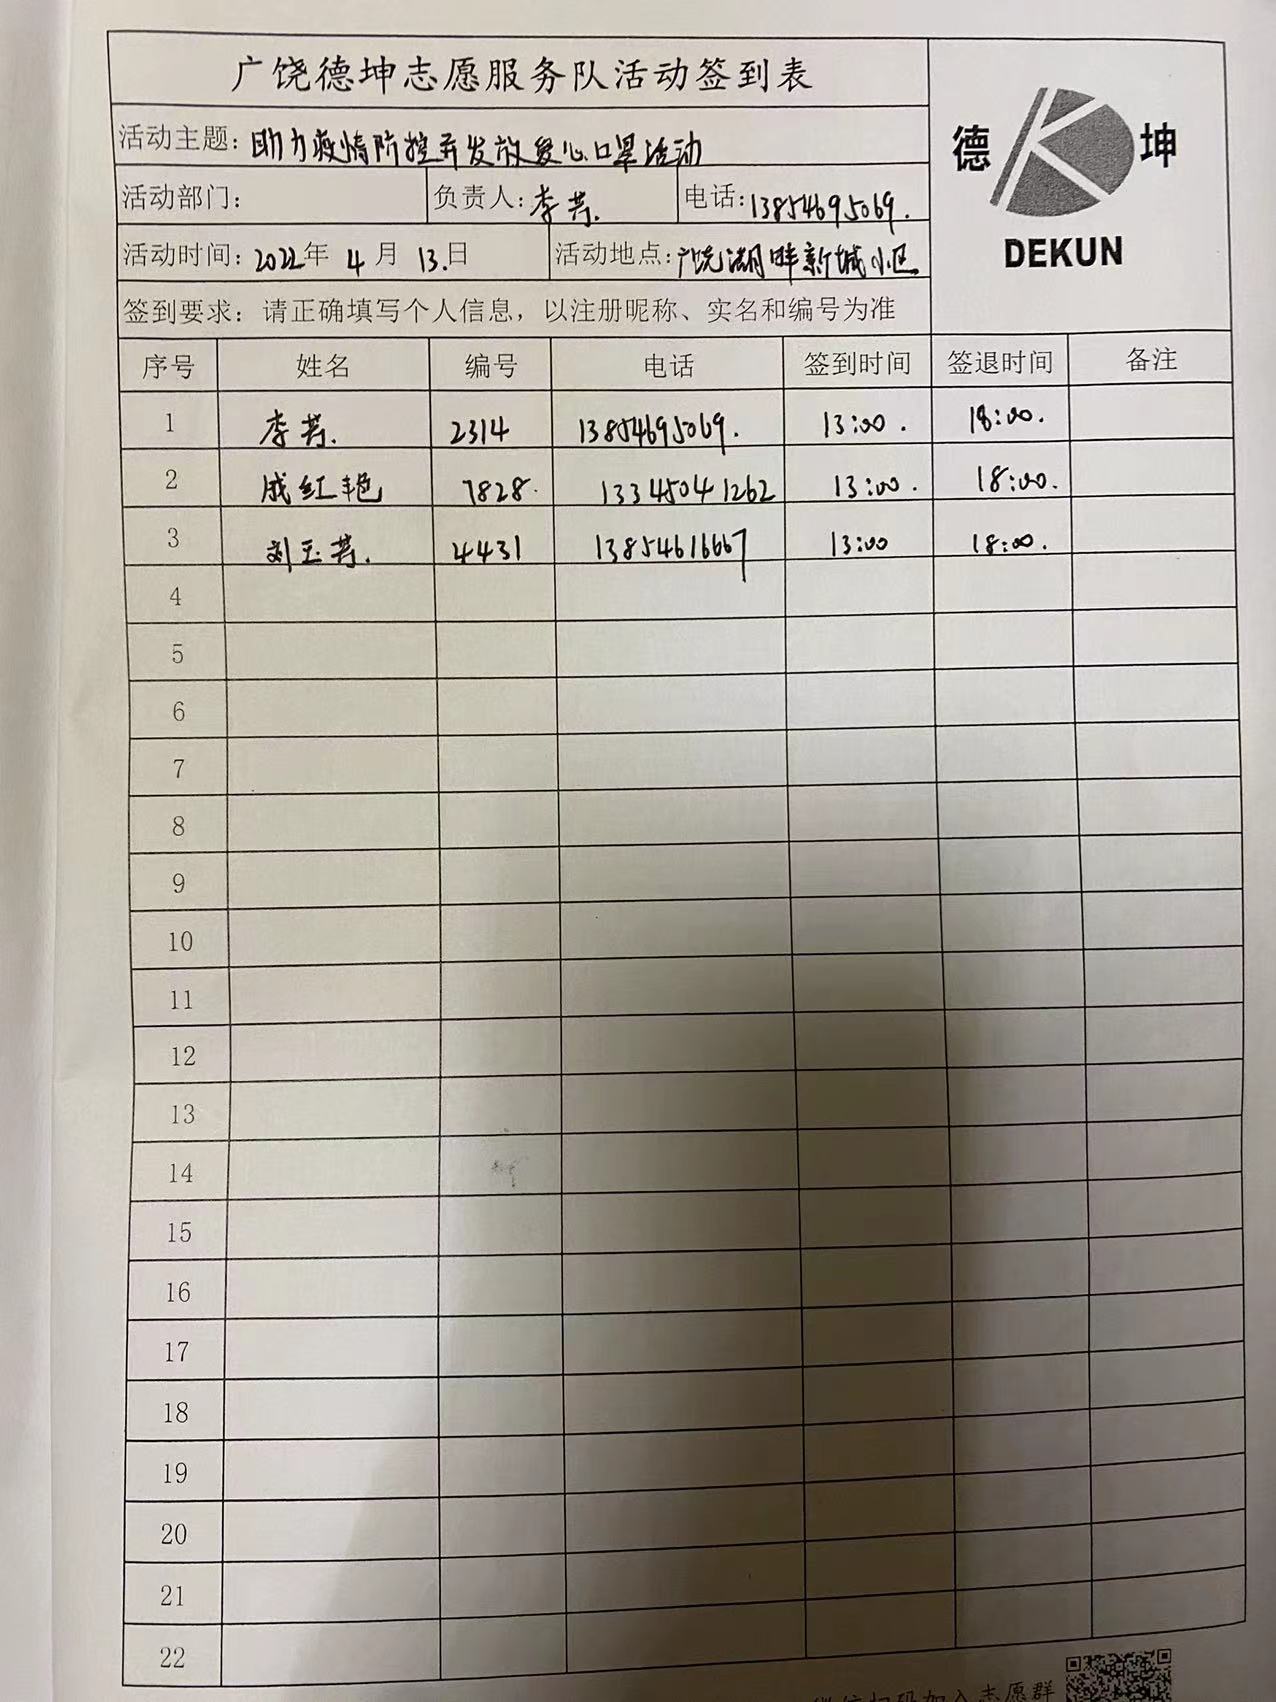 广饶德坤志愿服务队活动签到表
德 坤
DEKUN
活动主题：助力疫情防控并发放爱心口罩活动
活动部门： 负责人：李芳. 电话：13854695069.
活动时间：2022年 4 月 13.日 活动地点：广饶湖畔新城小区
签到要求：请正确填写个人信息，以注册昵称、实名和编号为准
序号 姓名 编号 电话 签到时间 签退时间 备注
1 李芳. 2314 13854695069. 13:00. 18:00.
2 成红艳 7828. 13345041262 13:00. 18:00.
3 刘玉芳. 4431 13854616667 13:00 18:00.
4
5
6
7
8
9
10
11
12
13
14
15
16
17
18
19
20
21
22
扫码加入志愿群